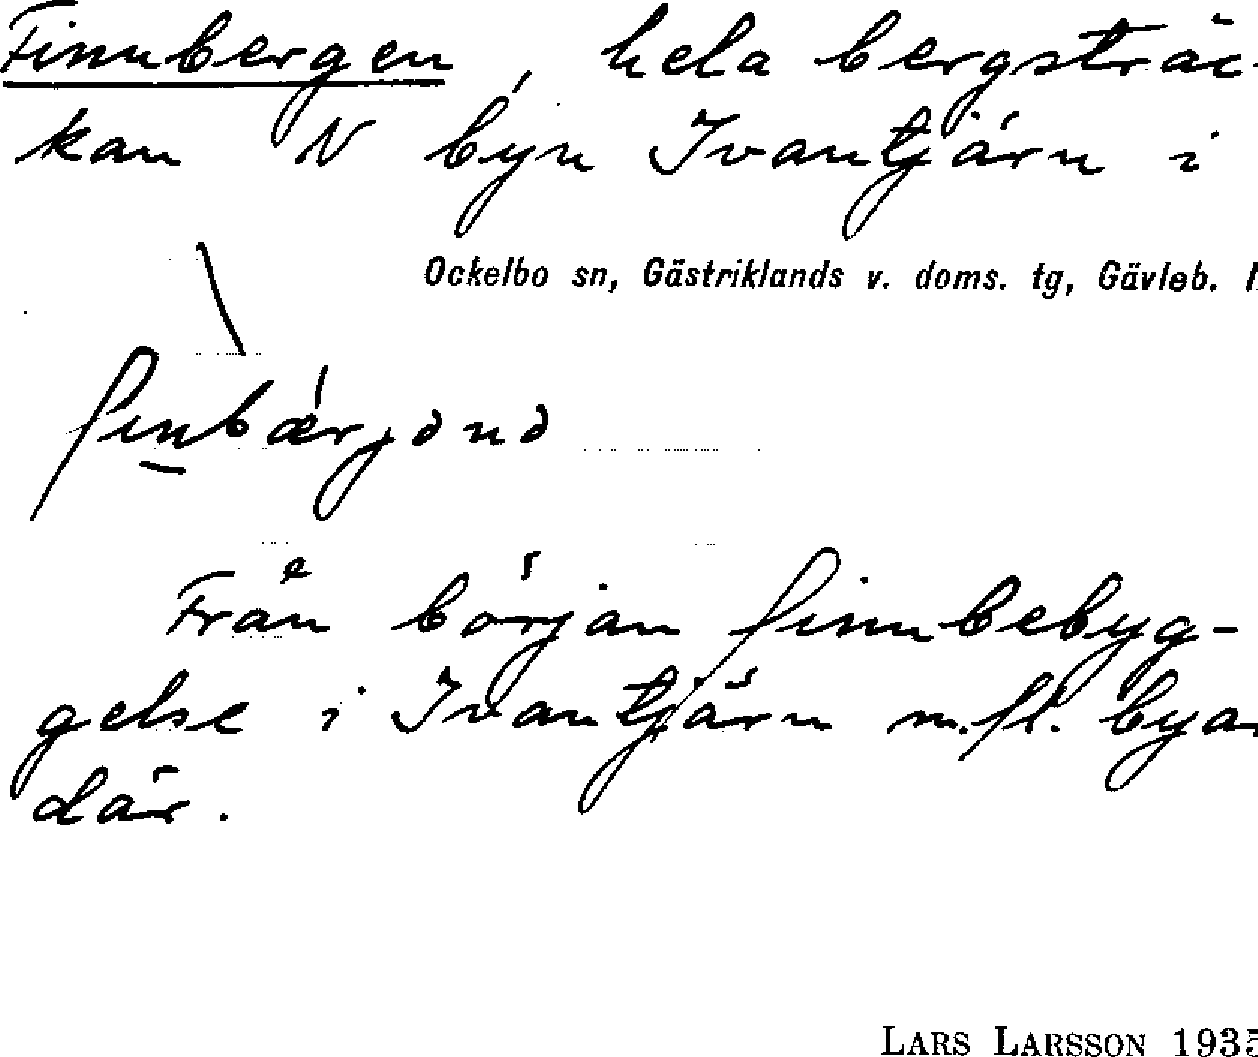 Finnbergen, hela bergsträc-
kan N byn Ivantjärn i
Ockelbo sn, Gästriklands v. doms. tg, Gävleb. l
finbærjənə
Från början finnbebyg-
gelse i Ivantjärn m.fl. byar
där.
LARS LARSSON 1935